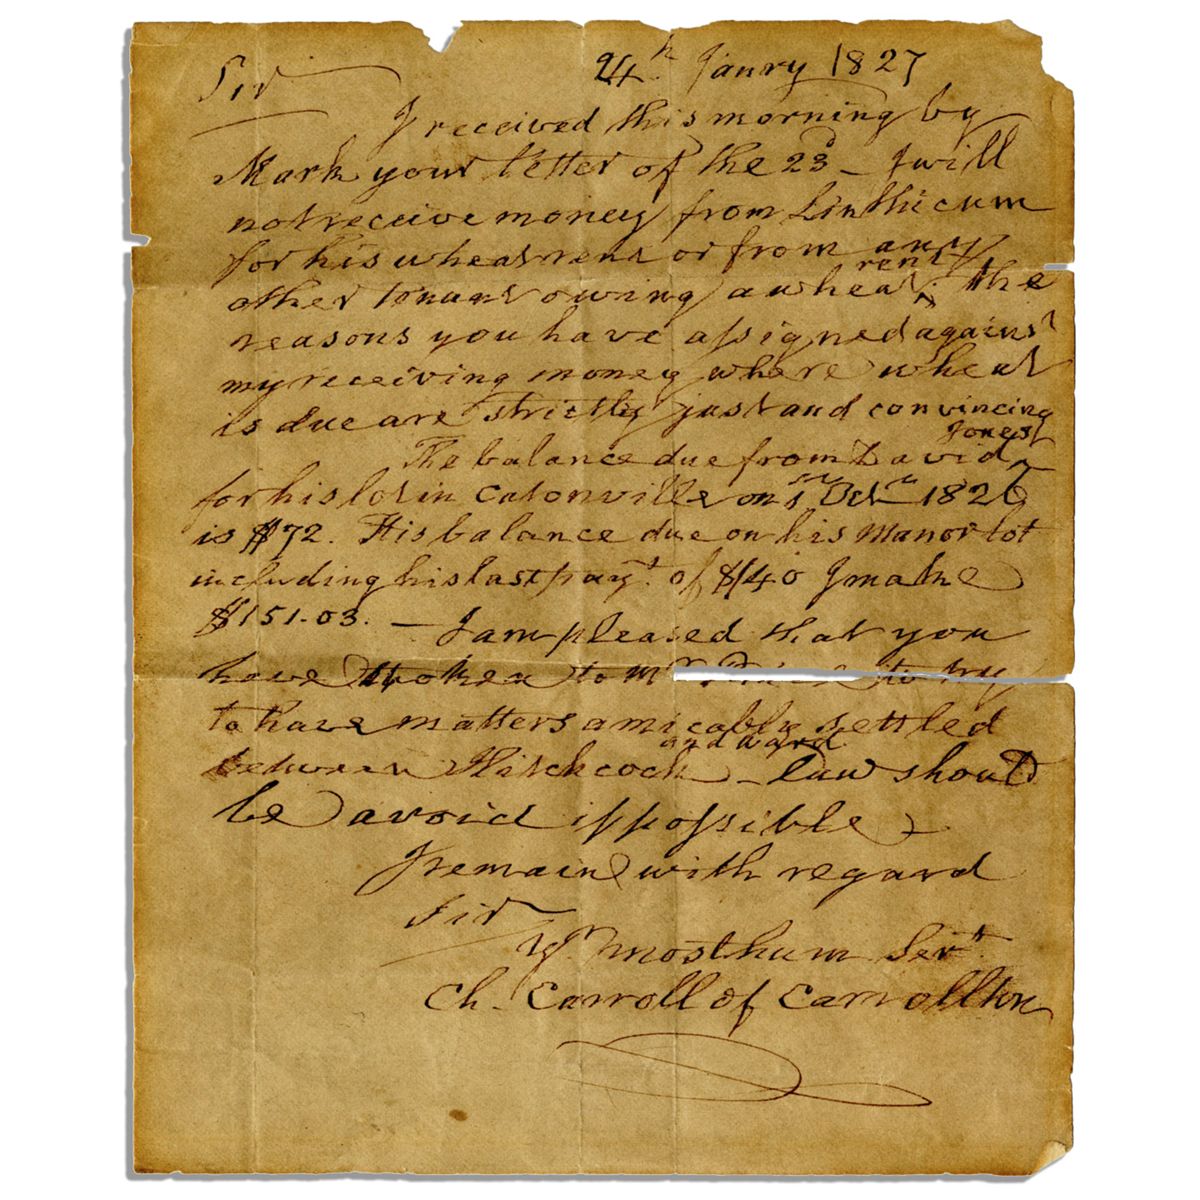 24th Janry 1827
Sir
I received this morning by
Mark your letter of the 23d – I will
not receive money from Linthicum
for his wheat rent or from any
other tenant owing a wheat rent ^ the
reasons you have assigned against
my receiving money where wheat
is due are strictly just and convincing
The balance due from David Jones
for his lot in Catonville on 1st Octr 1826
is $72. His balance due on his Manor lot
including his last paymt. of $140 I make
$151.03. — I am pleased that you
have spoken to Mr Price to try
to have matters amicably settled
between Hitchcock and Ward – law should
be avoid if possible
I remain with regard
Sir
Yr. most hum Servt.
Ch. Carroll of Carrollton